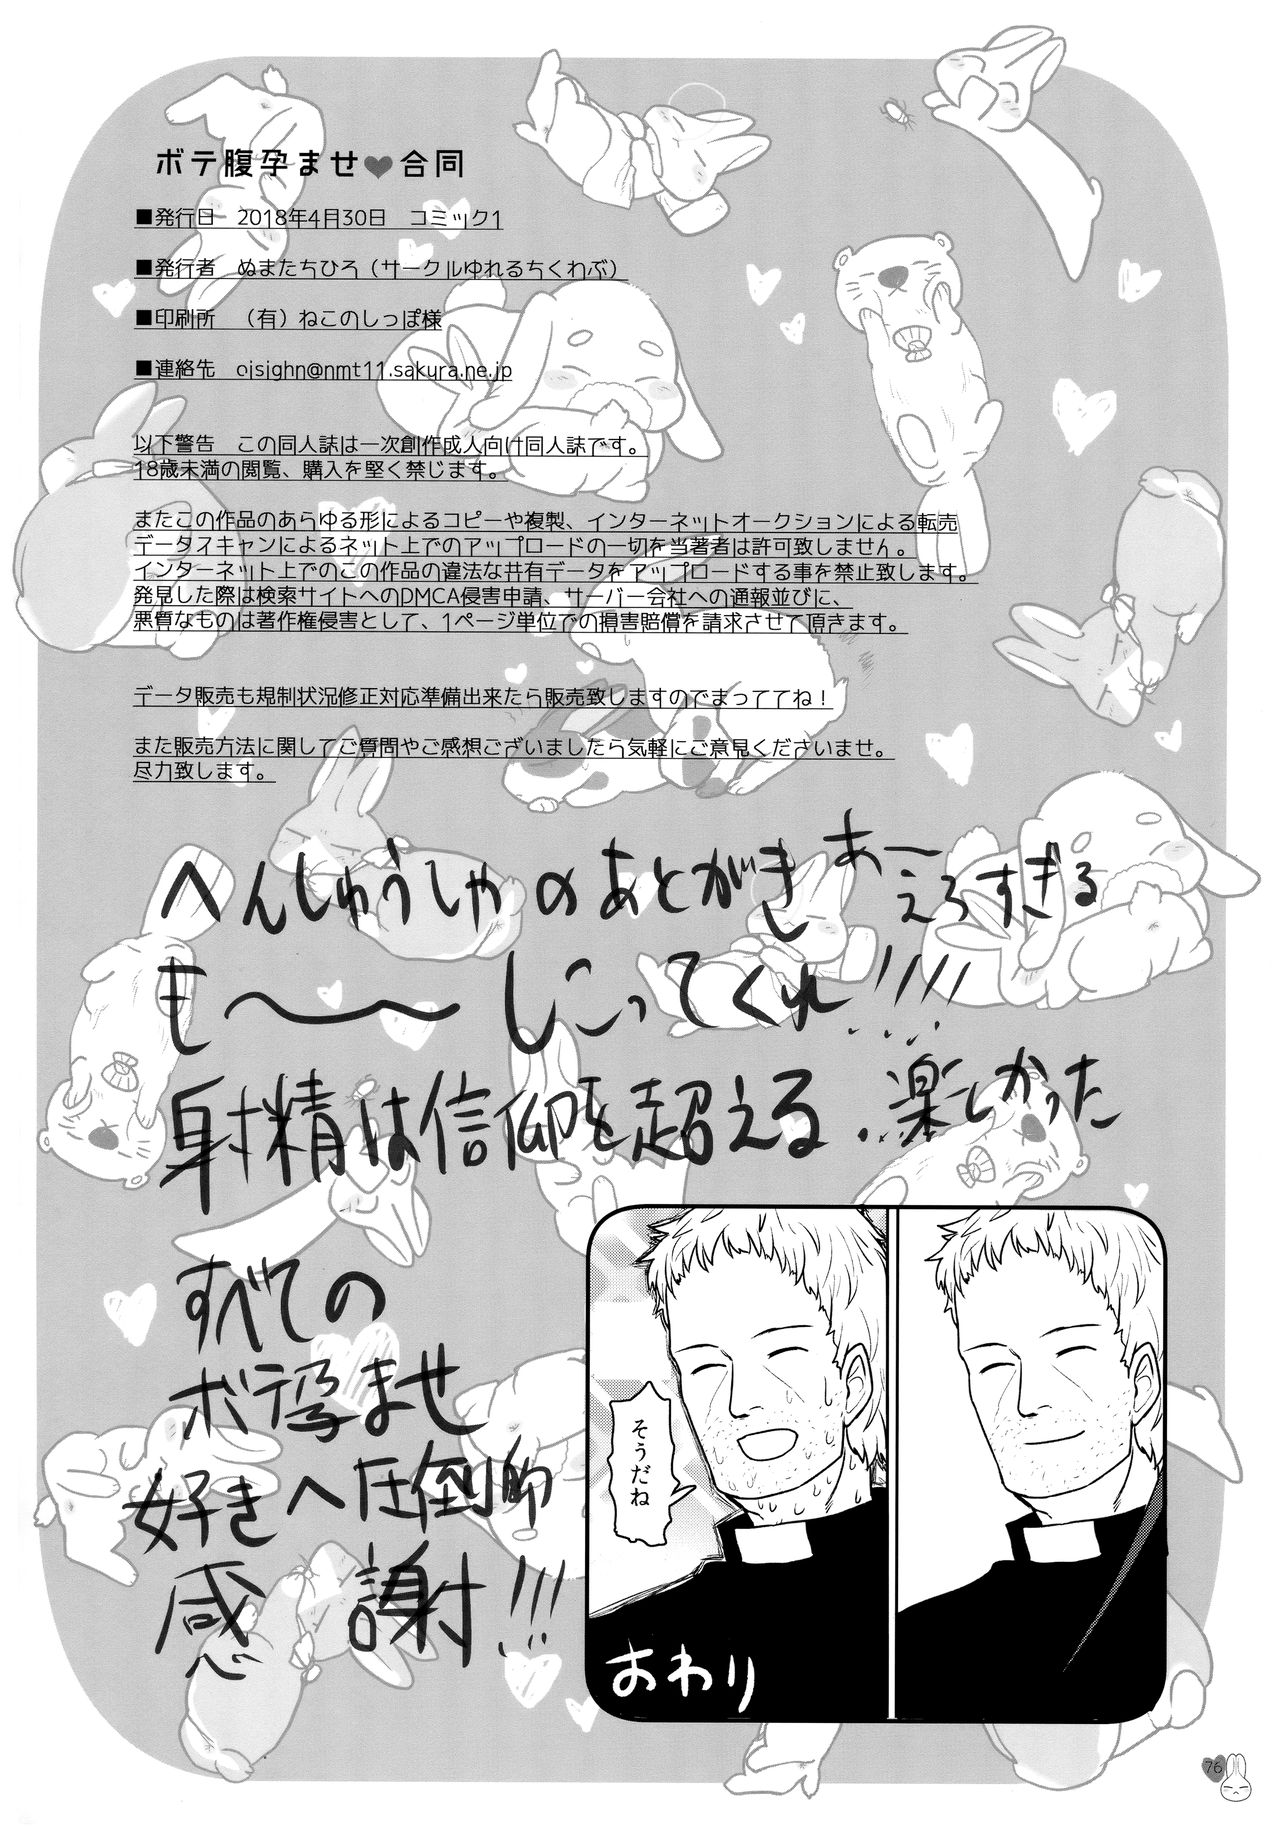 ボテ腹孕ませ♥合同
■発行日　2018年4月30日　コミック1
■発行者　ぬまたちひろ（サークルゆれるちくわぶ）
■印刷所　（有）ねこのしっぽ様
■連絡先　oisighn@nmt11.sakura.ne.jp
以下警告　この同人誌は一次創作成人向け同人誌です。
18歳未満の閲覧、購入を堅く禁じます。
またこの作品のあらゆる形によるコピーや複製、インターネットオークションによる転売
データスキャンによるネット上でのアップロードの一切を当著者は許可致しません。
インターネット上でのこの作品の違法な共有データをアップロードする事を禁止致します。
発見した際は検索サイトへのDMCA侵害申請、サーバー会社への通報並びに、
悪質なものは著作権侵害として、1ページ単位での損害賠償を請求させて頂きます。
データ販売も規制状況修正対応準備出来たら販売致しますのでまっててね！
また販売方法に関してご質問やご感想ございましたら気軽にご意見くださいませ。
尽力致します。
へんしゅうしゃのあとがき
あーえろすぎる
も〜〜しこってくれ!!!!
射精は信仰を超える.
楽しかった
すべての
ボテ孕ませ
好きへ圧倒的
感謝!!!
そうだね
おわり
76